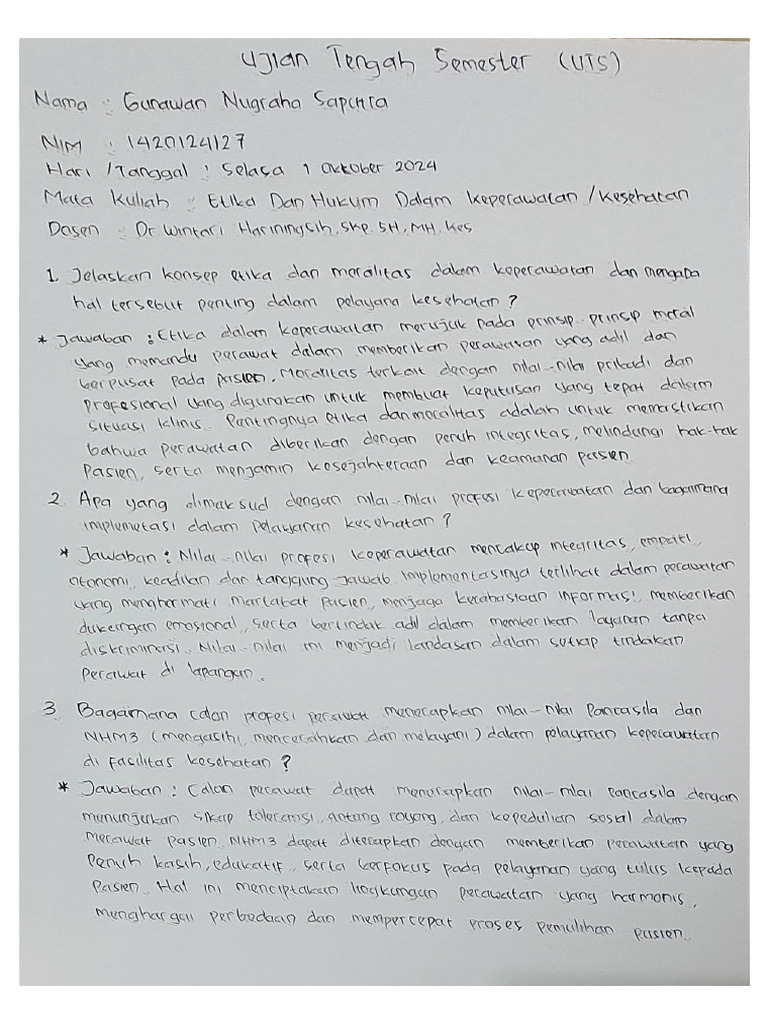 Ujian Tengah Semester (UTS)
Nama : Gunawan Nugraha Saputra
NIM : 1420124127
Hari / Tanggal : Selasa 1 Oktober 2024
Mata Kuliah : Etika Dan Hukum Dalam Keperawatan / Kesehatan
Dosen : Dr Wintari Hariningsih, Skp. SH, MH. Kes
1. Jelaskan konsep etika dan moralitas dalam keperawatan dan mengapa
hal tersebut penting dalam pelayana kesehatan ?
* Jawaban : Etika dalam keperawatan merujuk pada prinsip-prinsip moral
yang memandu perawat dalam memberikan perawatan yang adil dan
berpusat pada pasien. Moralitas terkait dengan nilai-nilai pribadi dan
profesional yang digunakan untuk membuat keputusan yang tepat dalam
situasi klinis. Pentingnya etika dan moralitas adalah untuk memastikan
bahwa perawatan diberikan dengan penuh integritas, melindungi hak-hak
Pasien, serta menjamin kesejahteraan dan keamanan pasien.
2. Apa yang dimaksud dengan nilai-nilai profesi keperawatan dan bagaimana
implemetasi dalam pelayanan kesehatan ?
* Jawaban : Nilai-nilai profesi keperawatan mencakup integritas, empati,
otonomi, keadilan dan tanggung jawab. Implementasinya terlihat dalam perawatan
yang menghormati martabat pasien, menjaga kerahasiaan informasi, memberikan
dukungan emosional, serta bertindak adil dalam memberikan layanan tanpa
diskriminasi. Nilai-nilai ini menjadi landasan dalam setiap tindakan
perawat di lapangan.
3. Bagaimana calon profesi perawat menerapkan nilai-nilai Pancasila dan
NHM3 (mengasihi, mencerahkan dan melayani) dalam pelayanan keperawatan
di fasilitas kesehatan ?
* Jawaban : Calon perawat dapat menerapkan nilai-nilai Pancasila dengan
menunjukan sikap toleransi, gotong royong, dan kepedulian sosial dalam
merawat pasien. NHM3 dapat diterapkan dengan memberikan perawatan yang
Penuh kasih, edukatif, serta berfokus pada pelayanan yang tulus kepada
Pasien. Hal ini menciptakan lingkungan perawatan yang harmonis,
menghargai perbedaan dan mempercepat proses pemulihan pasien.